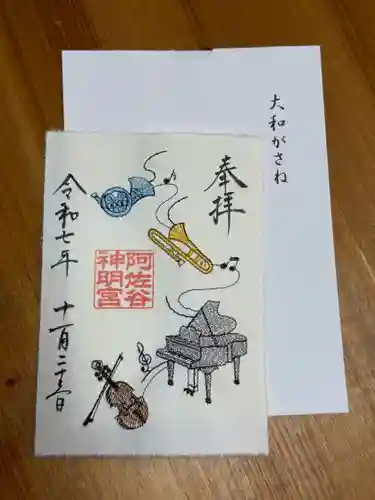 大和がさね
奉拝
阿佐谷
神明宮
令和七年 十一月二十三日